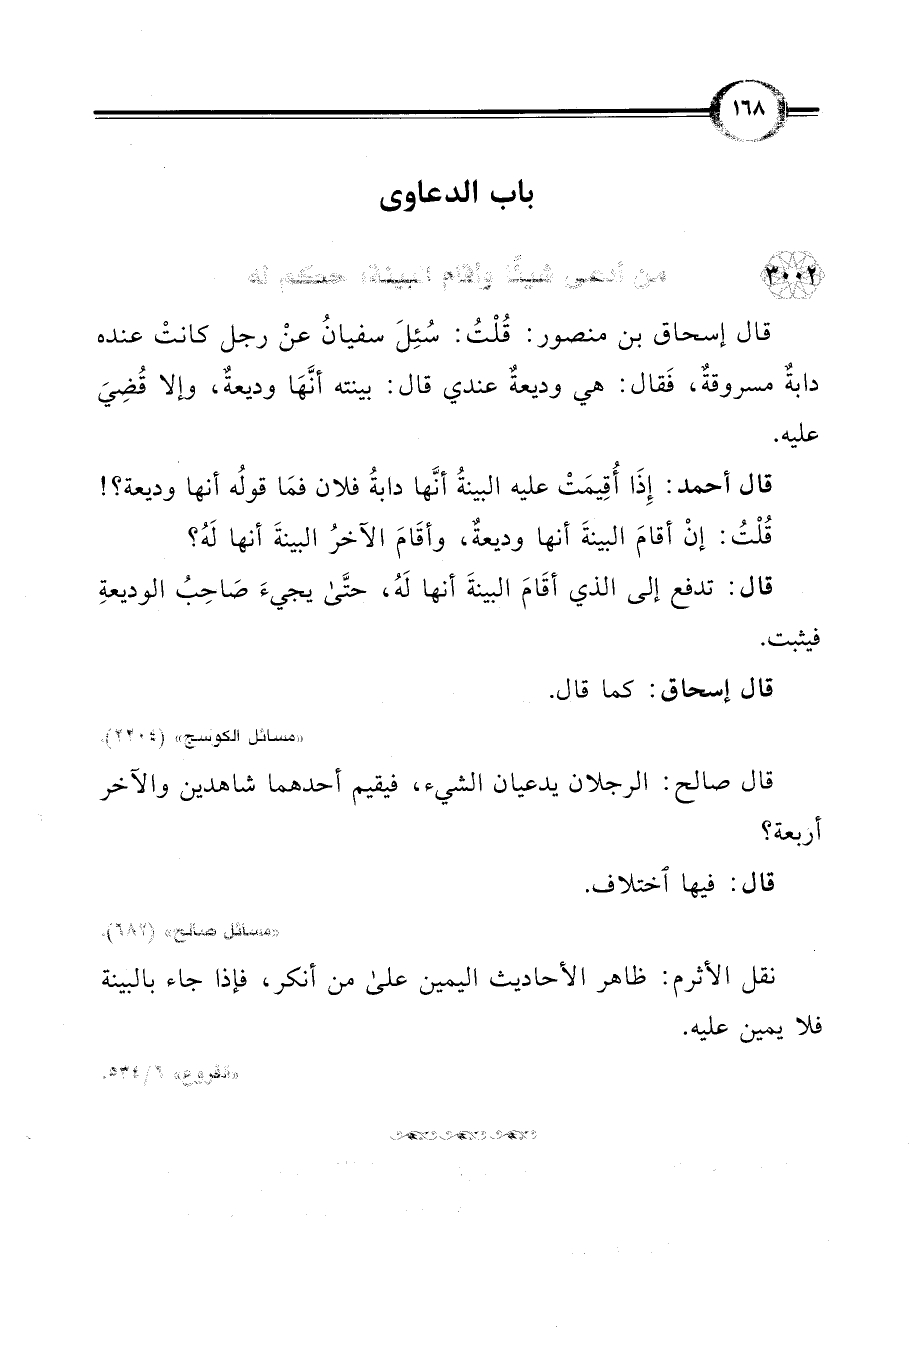 ١٦٨
باب الدعاوى
٣٠٠٢ من أدعى شيئًا وأقام البينة، حكم له
قال إسحاق بن منصور: قُلْتُ: سُئِلَ سفيانُ عنْ رجل كانتْ عنده
دابةٌ مسروقةٌ، فَقال: هي وديعةٌ عندي قال: بينته أنَّهَا وديعةٌ، وإلا قُضِيَ
عليه.
قال أحمد: إِذَا أُقِيمَتْ عليه البينةُ أنَّها دابةُ فلان فمَا قولُه أنها وديعة؟!
قُلْتُ: إنْ أقامَ البينةَ أنها وديعةٌ، وأقَامَ الآخرُ البينةَ أنها لَهُ؟
قال: تدفع إلى الذي أقَامَ البينةَ أنها لَهُ، حتَّىٰ يجيءَ صَاحِبُ الوديعةِ
فيثبت.
قال إسحاق: كما قال.
«مسائل الكوسج» (٢٢٠٤).
قال صالح: الرجلان يدعيان الشيء، فيقيم أحدهما شاهدين والآخر
أربعة؟
قال: فيها ٱختلاف.
«مسائل صالح» (٦٨٢).
نقل الأثرم: ظاهر الأحاديث اليمين علىٰ من أنكر، فإذا جاء بالبينة
فلا يمين عليه.
«الفروع» ٦/ ٥٣٤.